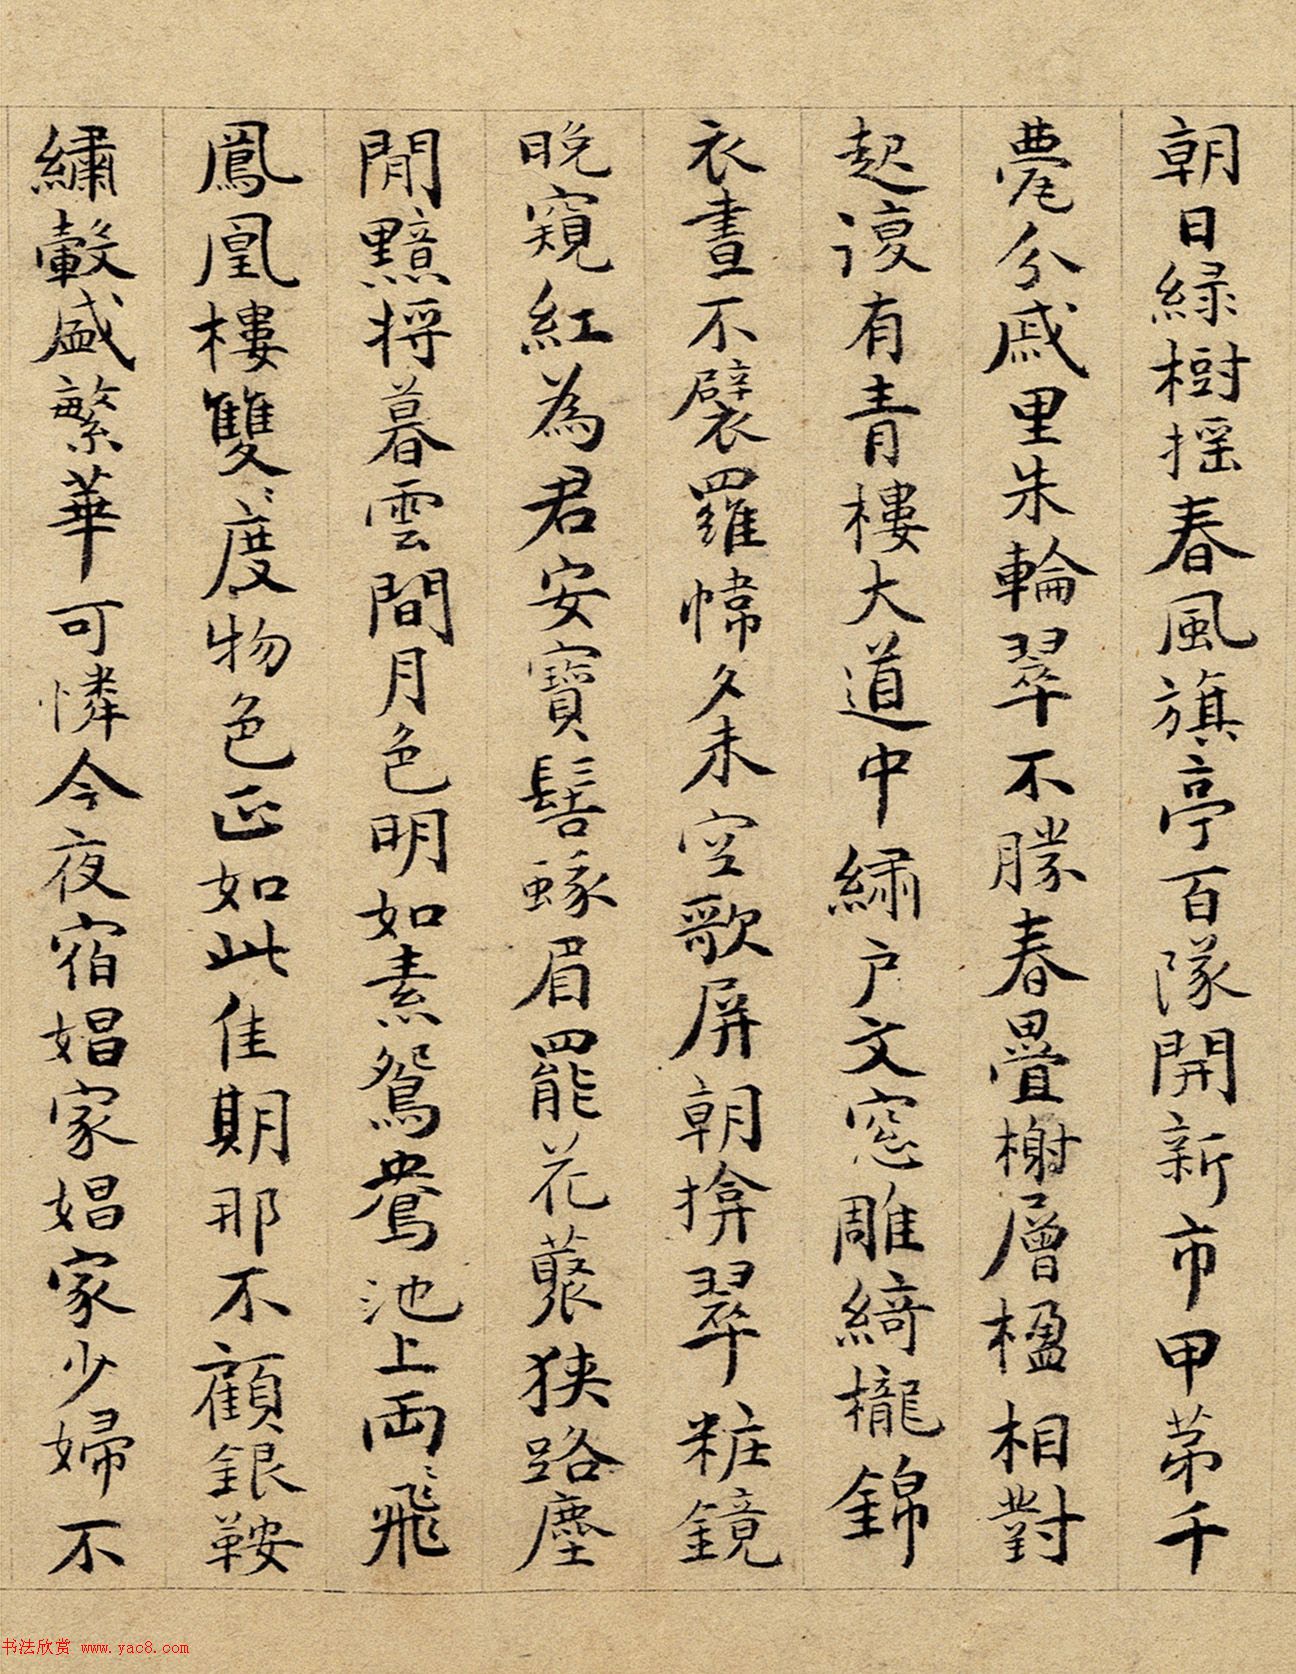 朝日緑樹揺春風旗亭百隊開新市甲第千
甍分戚里朱輪翠不勝春疊榭層楹相對
起復有青樓大道中繡户文窓雕綺櫳錦
衣晝不襞羅幃夕未空歌屏朝掩翠粧鏡
晩窺紅為君安寶髻蛾眉罷花藂狭路塵
閒黯将暮雲間月色明如素鴛鴦池上兩兩飛
鳳凰樓雙雙度物色正如此佳期那不顧銀鞍
繡轂盛繁華可憐今夜宿娼家娼家少婦不
书法欣赏 www.yac8.com